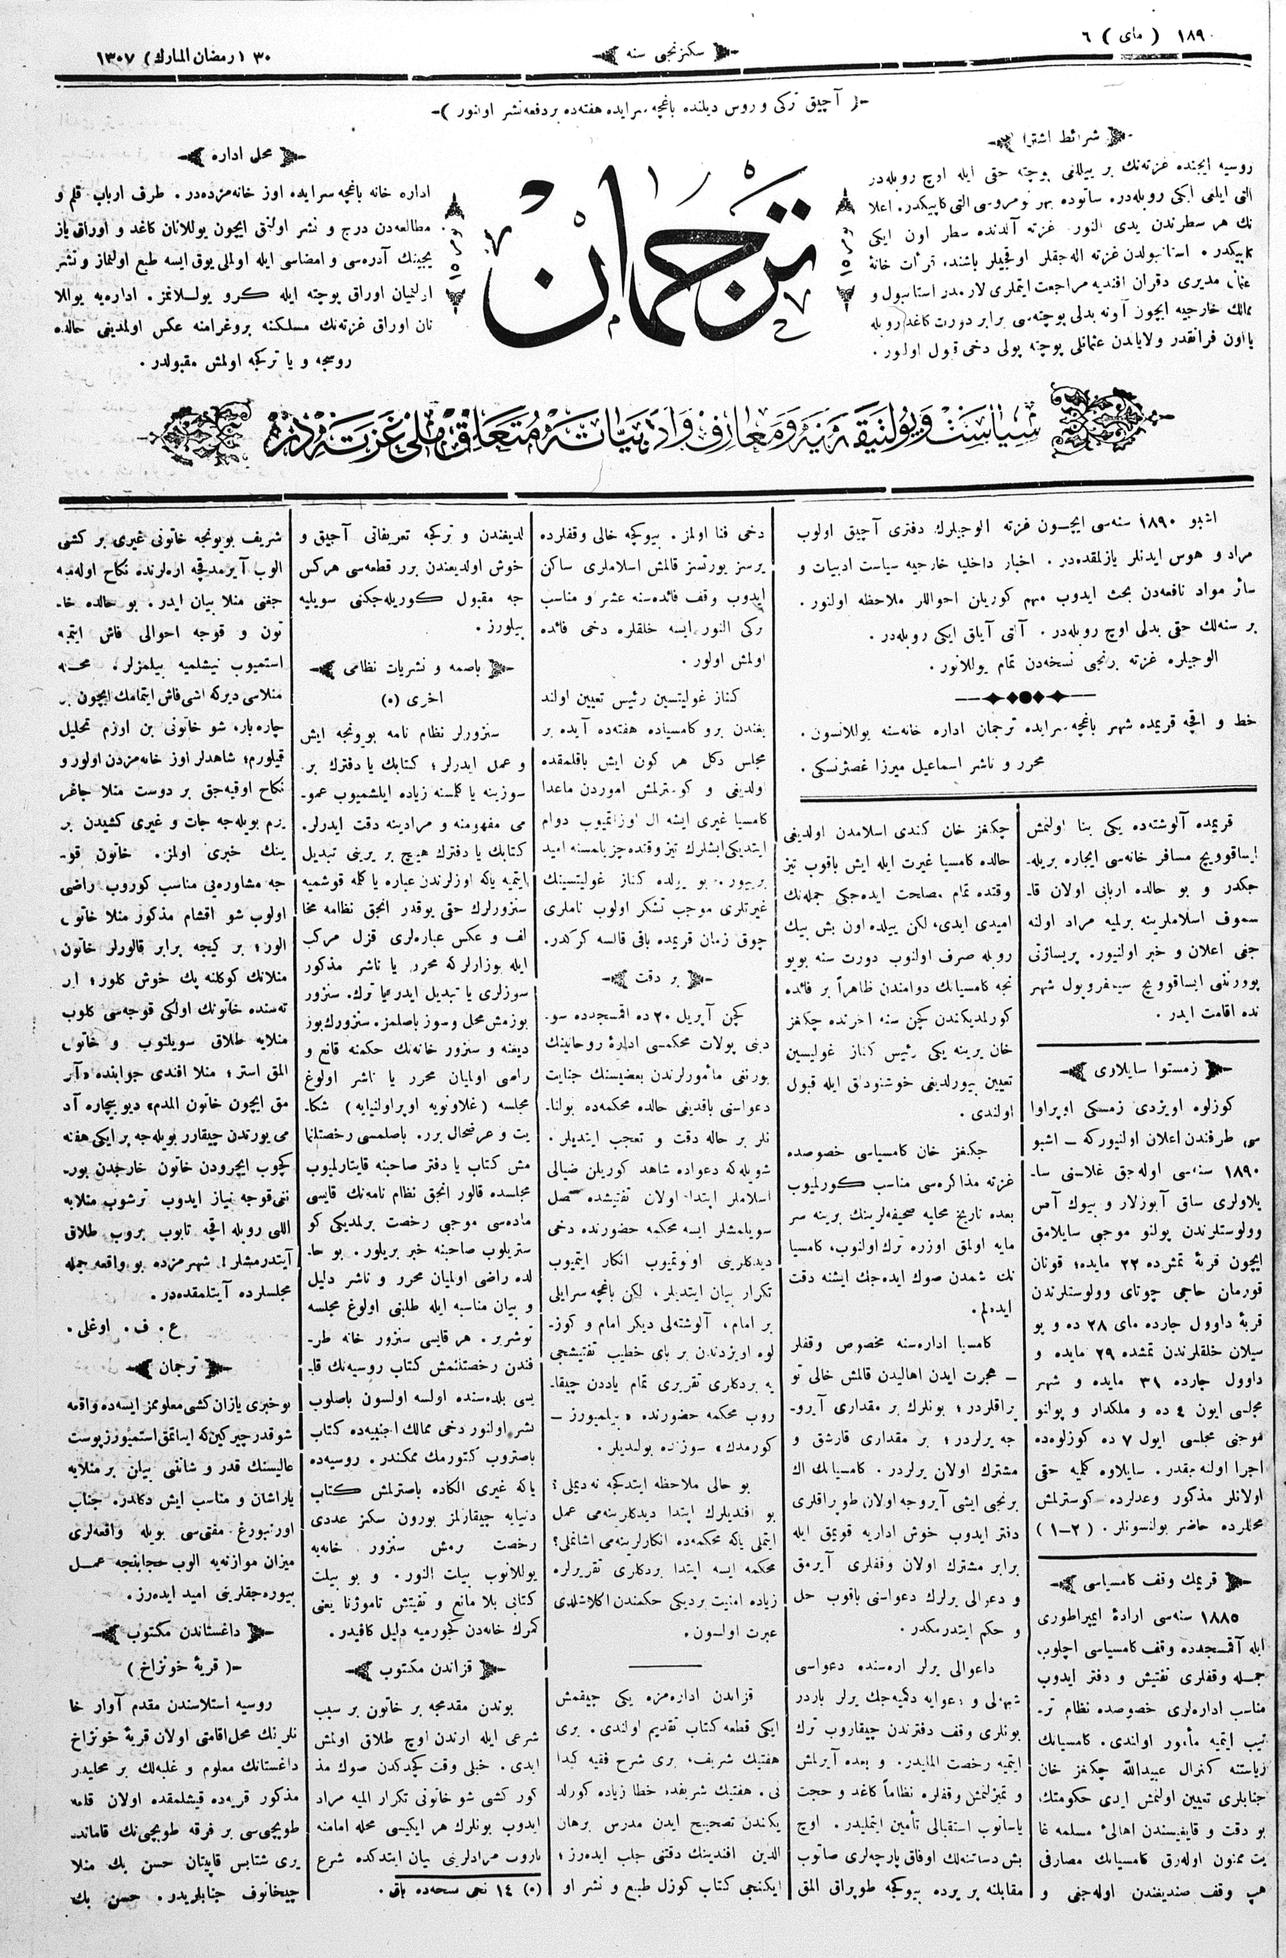 ١٨٩٠ (مای) ٦
سکزنجی سنه
٣٠ (رمضان المبارك) ١٣٠٧
آچیق ترکی و روس دیلنده باغچه سرایده هفته‌ده بر دفعه نشر اولنور
شرائط اشترا
روسیه ایچنده غزته‌نك بر ییللغی پوچته حقی ایله اوچ روبله‌در
التی ایلغی ایکی روبله‌در. صاتوده بهر نومروسی التی کاپیکدر. اعلا
نك هر سطرندن یدی النور. غزته آلدنده سطر اون ایکی
کاپیکدر.
ترجمان
محل اداره
اداره خانه باغچه سرایده اوز خانه‌مزده‌در. طرف ارباب قلم و
مطالعه‌دن درج و نشر اولنق ایچون یوللانان کاغد و اوراق یاز
یجینك آدره‌سی و امضاسی ایله اولملی یوق ایسه طبع اولنماز و نشر
ایدلمیان اوراق پوچته ایله کرو یوللانمز. اداره‌یه یوللا
نان اوراق غزته‌نك مسلکنه پروغرامنه عکس اولمدیغی حالده
روسجه و یا ترکجه اولمش مقبولدر.
سیاست و پولتیقه و معارف و ادبیاته متعلق ملی غزته‌در
اشبو ١٨٩٠ سنه‌سی ایچون غزته الوجیلرك دفتری آچیق اولوب
مراد و هوس ایدنلر یازلمقده‌در. اخبار داخلیه خارجیه سیاست ادبیات و
سائر مواد نافعه‌دن بحث ایدوب مهم کوریلان احواللر ملاحظه اولنور.
بر سنه‌لك حقی بدلی اوچ روبله‌در. آلتی آیلق ایکی روبله‌در.
الوجیلره غزته برنجی نسخه‌دن تمام یوللانور.
خط و اقچه قریمده شهر باغچه سرایده ترجمان اداره خانه‌سنه یوللانسون.
محرر و ناشر اسماعیل میرزا غصپرنسکی.
قریمده آلوشته‌ده یکی بنا اولنمش
ایساقوویچ مسافر خانه‌سی ایجاره بریله‌
جکدر و بو حالده اربابی اولان قا‌
سموف اسلاملرینه برلمیه مراد اولنه
جغی اعلان و خبر اولنیور.
شهر
نده اقامت ایدر.
زمستوا سایلاری
کوزلوه اویزدی زمسکی اوپراوا
سی طرفندن اعلان اولنیورکه — اشبو
١٨٩٠ سنه‌سی اوله‌جق غلاسنی سا‌
ایچون قریهٔ تمشده ٢٢ مایده؛ قونان
قورمان حاجی چوتای وولوستلرندن
قریهٔ داوول جارده مای ٢٨ ده و یو
سیلان خلقلرندن تمشده ٢٩ مایده و
داوول جارده ٣١ مایده و شهر
مجلسی ایون ٤ ده و ملکدار و پوانو
موجنی مجلسی ایول ٧ ده کوزلوه‌ده
اجرا اولنه‌جقدر. سایلاوه کلمیه حقی
اولانلر مذکور وعدلرده کوسترلمش
محللرده حاضر بولنسونلر. (٢–١)
قریمك وقف کامسیاسی
١٨٨٥ سنه‌سی ارادهٔ ایمپراطوری
ایله آقمسجدده وقف کامسیاسی اچلوب
جمله وقفلری تفتیش و دفتر ایدوب
مناسب اداره‌لری خصوصده نظام تر‌
تیب ایتمیه مأمور اولندی. کامسیانك
ریاستنه کنرال عبیدالله چکغز خان
جنابلری تعیین اولنمش ایدی حکومتك
بو دقت و قایغیسندن اهالئ مسلمه غا
یت ممنون اوله‌رق کامسیانك مصارفی
هپ وقف صندیغندن اوله‌جغی و
چکغز خان کندی اسلامدن اولدیغی
حالده کامسیا غیرت ایله ایش باقوب تیز
وقتده تمام مصلحت ایده‌جکی جمله‌نك
امیدی ایدی، لکن ییلده اون بش بیك
روبله صرف اولنوب دورت سنه بویو
نجه کامسیانك دوامندن ظاهراً بر فائده
کورلمدیکندن کچن سنه اخرنده چکغز
خان یرینه یکی رئیس کناز غولیتسین
تعیین بیورلدیغی خوشنودلق ایله قبول
اولندی.
چکغز خان کامسیاسی خصوصده
غزته مذاکره‌سی مناسب کورلمیوب
بعده تاریخ محلیه صحیفه‌لرینك برینه سر
مایه اولمق اوزره ترك اولنوب، کامسیا
نك شمدن صوك ایده‌جك ایشنه دقت
ایده‌لم.
کامسیا اداره‌سنه مخصوص وقفلر
— هجرت ایدن اهالیدن قالمش خالی تو
پراقلردر؛ بونلرك بر مقداری آیرو‌
جه یرلردر؛ بر مقداری قارشق و
مشترك اولان یرلردر. کامسیانك اك
برنجی ایشی آیروجه اولان طوپراقلری
دفتر ایدوب خوش اداریه قویمق ایله
برابر مشترك اولان وقفلری آیرمق
و دعوالی یرلرك دعواسنی باقوب حل
و حکم ایتدرمکدر.
داعوالی یرلر اره‌سنده دعواسی
شبهه‌لی و دعوایه دکمیه‌جك یرلر باردر
بونلری وقف دفترندن چیقاروب ترك
ایتمیه رخصت المالیدر. و بعده آیرلمش
و تمیزلنمش وقفلره نظاماً کاغد و حجت
یاساتوب استقبالی تأمین ایتملیدر. اوچ
بش دساتنه‌لك اوفاق پارچه‌لری صاتوب
مقابلنه بر یرده بیوکجه طوپراق المق
دخی فنا اولمز. بیوکجه خالی وقفلرده
یرسز یورتسز قالمش اسلاملری ساکن
ایدوب وقف فائده‌سنه عشر و مناسب
رکی النور ایسه خلقلره دخی فائده
اولمش اولور.
کناز غولیتسین رئیس تعیین اولند
یغندن برو کامسیاده هفته‌ده آیده بر
مجلس دکل هر کون ایش باقلمقده
اولدیغی و کوسترلمش اموردن ماعدا
کامسیا غیری ایشه ال اوزاتمیوب دوام
ایتدیکی ایشلرك تیز وقتده چزیلمسنه امید
بریور. بو یولده کناز غولیتسینك
غیرتلری موجب تشکر اولوب ناملری
چوق زمان قریمده باقی قالسه کرکدر.
بر دقت
کچن آپریل ٢٠ ده اقمسجدده سو‌
دبنی پولات محکمسی ادارهٔ روحانینك
بورنغی مأمورلرندن بعضیسنك جنایت
دعواسنی باقدیغی حالده محکمه‌ده بولنا‌
نلر بر حاله دقت و تعجب ایتدیلر.
شویله‌که دعواده شاهد کوریلن ضیالی
اسلاملر ابتدا اولان تفتیشده مفصل
سویلمشلر ایسه محکمه حضورنده دخی
دیدکلرینی اونوتمیوب انکار ایتمیوب
تکرار بیان ایتدیلر. لکن باغچه سرایلی
بر امام، آلوشته‌لی دیکر امام و کوز‌
لوه اویزدندن بر بای خطیب تفتیشجی
یه بردکلری تقریری تمام یاددن چیقا‌
روب محکمه حضورنده «بیلمیورز —
کورمدك» سوزنده بولندیلر.
بو حالی ملاحظه ایتدکجه نه دیملی؟
بو افندیلرك ابتدا دیدکلرینه‌می عمل
ایتملی یاکه محکمه‌ده انکارلرینه‌می اشانملی؟
محکمه ایسه ابتدا بردکلری تقریرلره
زیاده امنیت بردیکی حکمندن اکلاشلدی
عبرت اولسون.
قزاندن اداره‌مزه یکی چیقمش
ایکی قطعه کتاب تقدیم اولندی. بری
هفتیك شریف، بری شرح فقیه کیدا
نی. هفتیك شریفده خطا زیاده کورلد
یکندن تصحیح ایدن مدرس برهان
الدین افندینك دقتنی جلب ایده‌رز؛
ایکنجی کتاب کوزل طبع و نشر او
لدیغندن و ترکجه تعریفاتی آچیق و
خوش اولدیغندن برر قطعه‌سی هرکس
جه مقبول کوریله‌جکنی سویلیه
بیلورز.
باصمه و نشریات نظامی
اخری (٥)
سنزورلر نظام نامه بویونجه ایش
و عمل ایدرلر؛ کتابك یا دفترك بر
سوزینه یا کلمسنه زیاده ایلشمیوب عمو‌
می مفهومنه و مرادینه دقت ایدرلر.
کتابك یا دفترك هیچ بر یرینی تبدیل
ایتمیه یاکه اوزلرندن عباره یا کلمه قوشمیه
سنزورلرك حقی یوقدر انجق نظامه مخا
لف و عکس عباره‌لری قزل مرکب
ایله بوزارلرکه محرر یا ناشر مذکور
سوزلری یا تبدیل ایدر یا ترك. سنزور
بوزمش محل و سوز باصلمز. سنزورك بوز
دیغنه و سنزور خانه‌نك حکمنه قانع و
راضی اولمیان محرر یا ناشر اولوغ
مجلسه (غلاونویه اوپراولنیایه) شکا‌
یت و عرضحال برر. باصلمسی رخصتلنما
مش کتاب یا دفتر صاحبنه قایتارلمیوب
مجلسده قالور انجق نظام نامه‌نك قایسی
ماده‌سی موجبی رخصت برلمدیکی کو
ستریلوب صاحبنه خبر بریلور. بو حا‌
لده راضی اولمیان محرر و ناشر دلیل
و بیان مناسبه ایله طلبنی اولوغ مجلسه
توشرر. هر قایسی سنزور خانه طر‌
فندن رخصتلنمش کتاب روسیه‌نك قا‌
یسی بلده‌سنده اولسه اولسون باصلوب
نشر اولنور دخی ممالك اجنبیه‌ده کتاب
باصتروب کتورمك ممکندر. روسیه‌ده
یاکه غیری الکاده باصترلمش کتاب
دنیایه چیقارلمز بورون سکز عددی
رخصت برمش سنزور خانه‌یه
یوللانوب بیلت النور. و بو بیلت
کتابی بلا مانع و تفتیش تاموژنا یعنی
کمرك خانه‌دن کچورمیه دلیل کافیدر.
قزاندن مکتوب
بوندن مقدمجه بر خاتون بر سبب
شرعی ایله ارندن اوچ طلاق اولمش
ایدی. خیلی وقت کچدکدن صوك مذ
کور کشی شو خاتونی تکرار المیه مراد
ایدوب بونلرك هر ایکیسی محله امامنه
باروب مرادلرینی بیان ایتدکده شرع
(٥) ١٤ نجی نسحه‌ده باق.
شریف بویونجه خاتونی غیری بر کشی
الوب آیرمدقچه اره‌لرنده نکاح اوله‌میه
جغنی منلا بیان ایدر. بو حالده خا‌
تون و قوجه احوالی فاش ایتمیه
استمیوب نیشلمیه بیلمزلر. محله
منلاسی دیرکه اشی فاش ایتمامك ایچون بر
چاره بار، شو خاتونی بن اوزم تحلیل
قیلورم؛ شاهدلر اوز خانه‌مزدن اولور و
نکاح اوقیه‌جق بر دوست منلا چاغر
یرم بویله‌جه جات و غیری کشیدن بر
ینك خبری اولمز. خاتون قو‌
جه مشاوره‌یی مناسب کوروب راضی
اولوب شو اقشام مذکور منلا خاتونی
الور؛ بر کیجه برابر قالورلر خاتون
منلانك کوکلنه پك خوش کلور؛ ایر
ته‌سنده خاتونك اولکی قوجه‌سی کلوب
منلایه طلاق سویلتوب و خاتونی
المق استر؛ منلا افندی جوابنده «آیر
مق ایچون خاتون المدم» دیو بیچاره آد
می یورتدن چیقارر بویله‌جه بر ایکی هفته
کچوب ایچرودن خاتون خارجدن بور‌
نغی قوجه نیاز ایدوب ترشوب منلایه
اللی روبله اقچه تابوب بروب طلاق
آیتدرمشلر! شهرمزده بو واقعه جمله
مجلسلرده آیتلمقده‌در.
ع. ف. اوغلی.
ترجمان
بو خبری یازان کشی معلوممز ایسه‌ده واقعه
شو قدر چیرکین‌که ایناتمق استمیورز پوست
عالیسنك قدر و شاننی بیلن بر منلایه
یاراشان و مناسب ایش دکلدر. جناب
اورنبورغ مفتی‌سی بویله واقعه‌لری
میزان موازنه‌یه الوب حجابنجه عمل
بیوره‌جقلرینی امید ایده‌رز.
داغستاندن مکتوب
(قریهٔ خونزاخ)
روسیه استلاسندن مقدم آوار خا
نلرینك محل اقامتی اولان قریهٔ خونزاخ
داغستانك معلوم و غلبه‌لك بر محلیدر
مذکور قریه‌ده قیشلمقده اولان قلعه
طوپچی‌سی بر فرقه طوپچی‌نك قاماند‌
یری شتابس قاپیتان حسن بك منلا
چیخانوف جنابلریدر. حسن بك